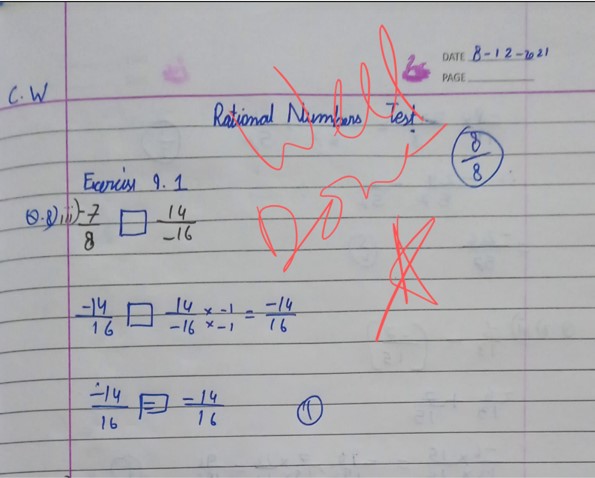 DATE 8-12-2021
PAGE
C.W
Rational Numbers Test
8/8
Well Done
Exercise 9.1
Q.8) iii) -7/8 □ 14/-16
-14/16 □ 14/-16 × -1/× -1 = -14/16
-14/16 = -14/16 1